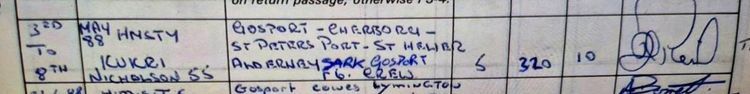 on return passage, otherwise
3RD TO 8TH
MAY 88
HMSTY KUKRI NICHOLSON 55
GOSPORT - CHERBORG -
ST PETERS PORT - ST HELIER
ANDERNEY SARK GOSPORT
F6. CREW
5
320
10
GOSPORT COWES LYMINGTON